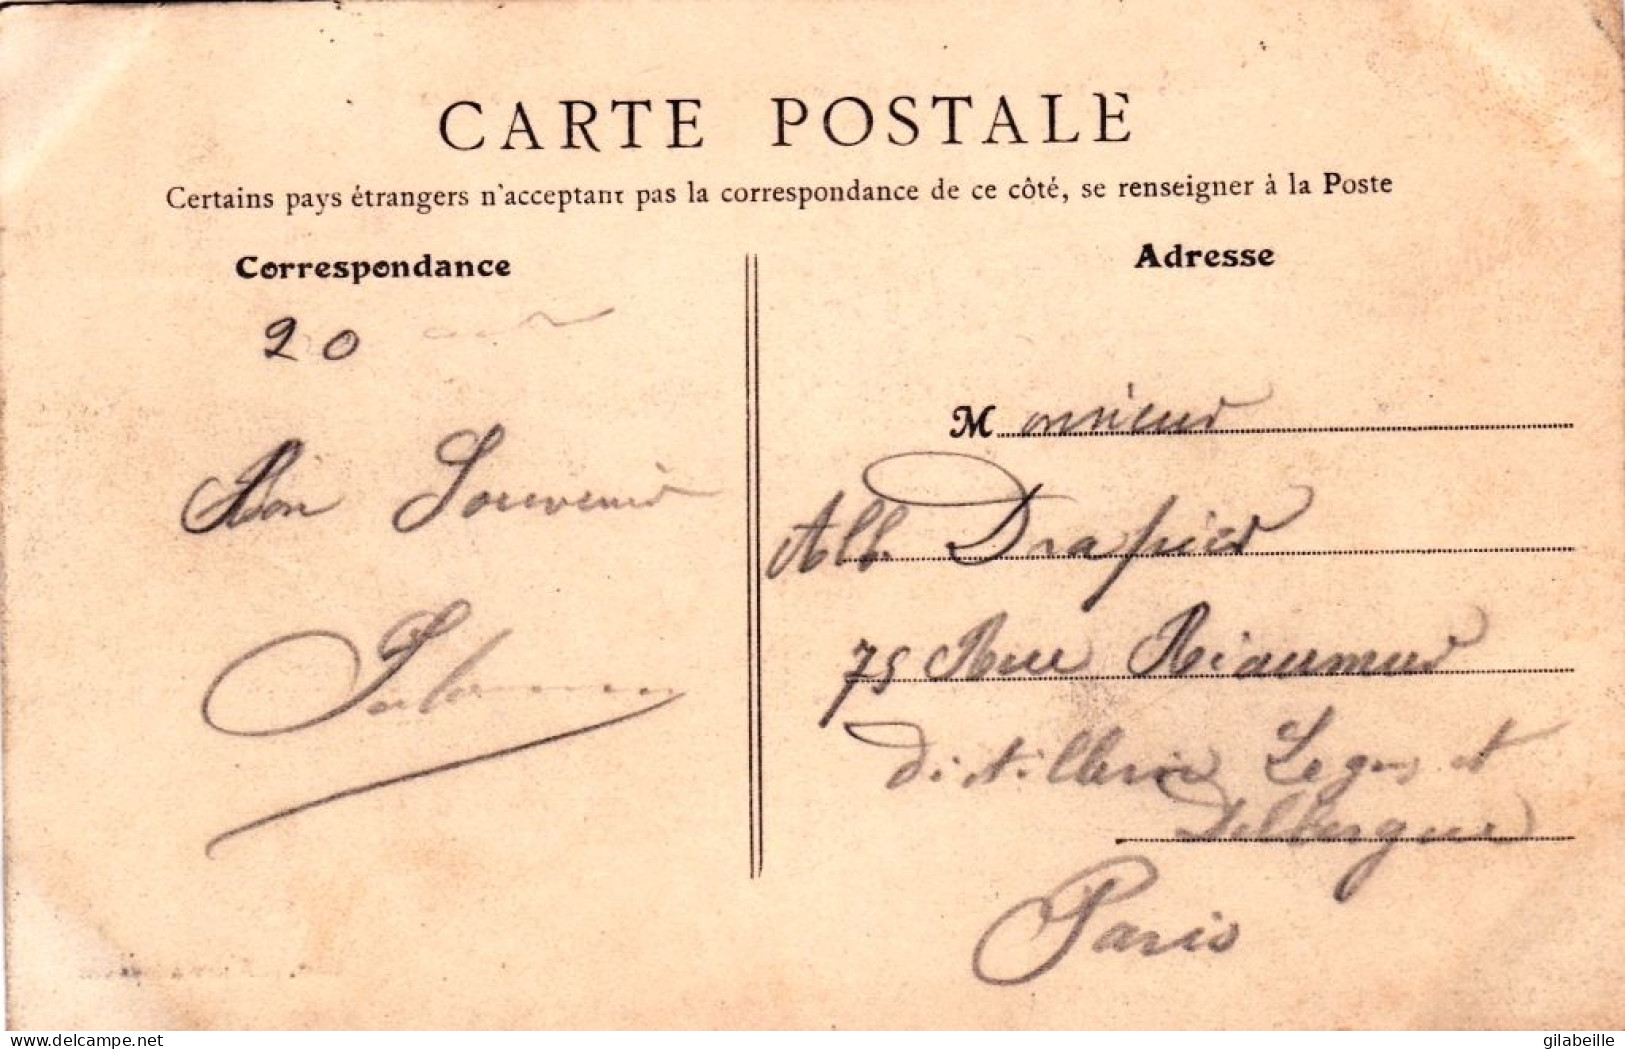 CARTE POSTALE
Certains pays étrangers n'acceptant pas la correspondance de ce côté, se renseigner à la Poste
Correspondance
Adresse
20
Bon Souvenir
Monsieur
Alb. Drapier
75 Rue Réaumur
Distillerie et
Paris
delcampe.net
gilabeille